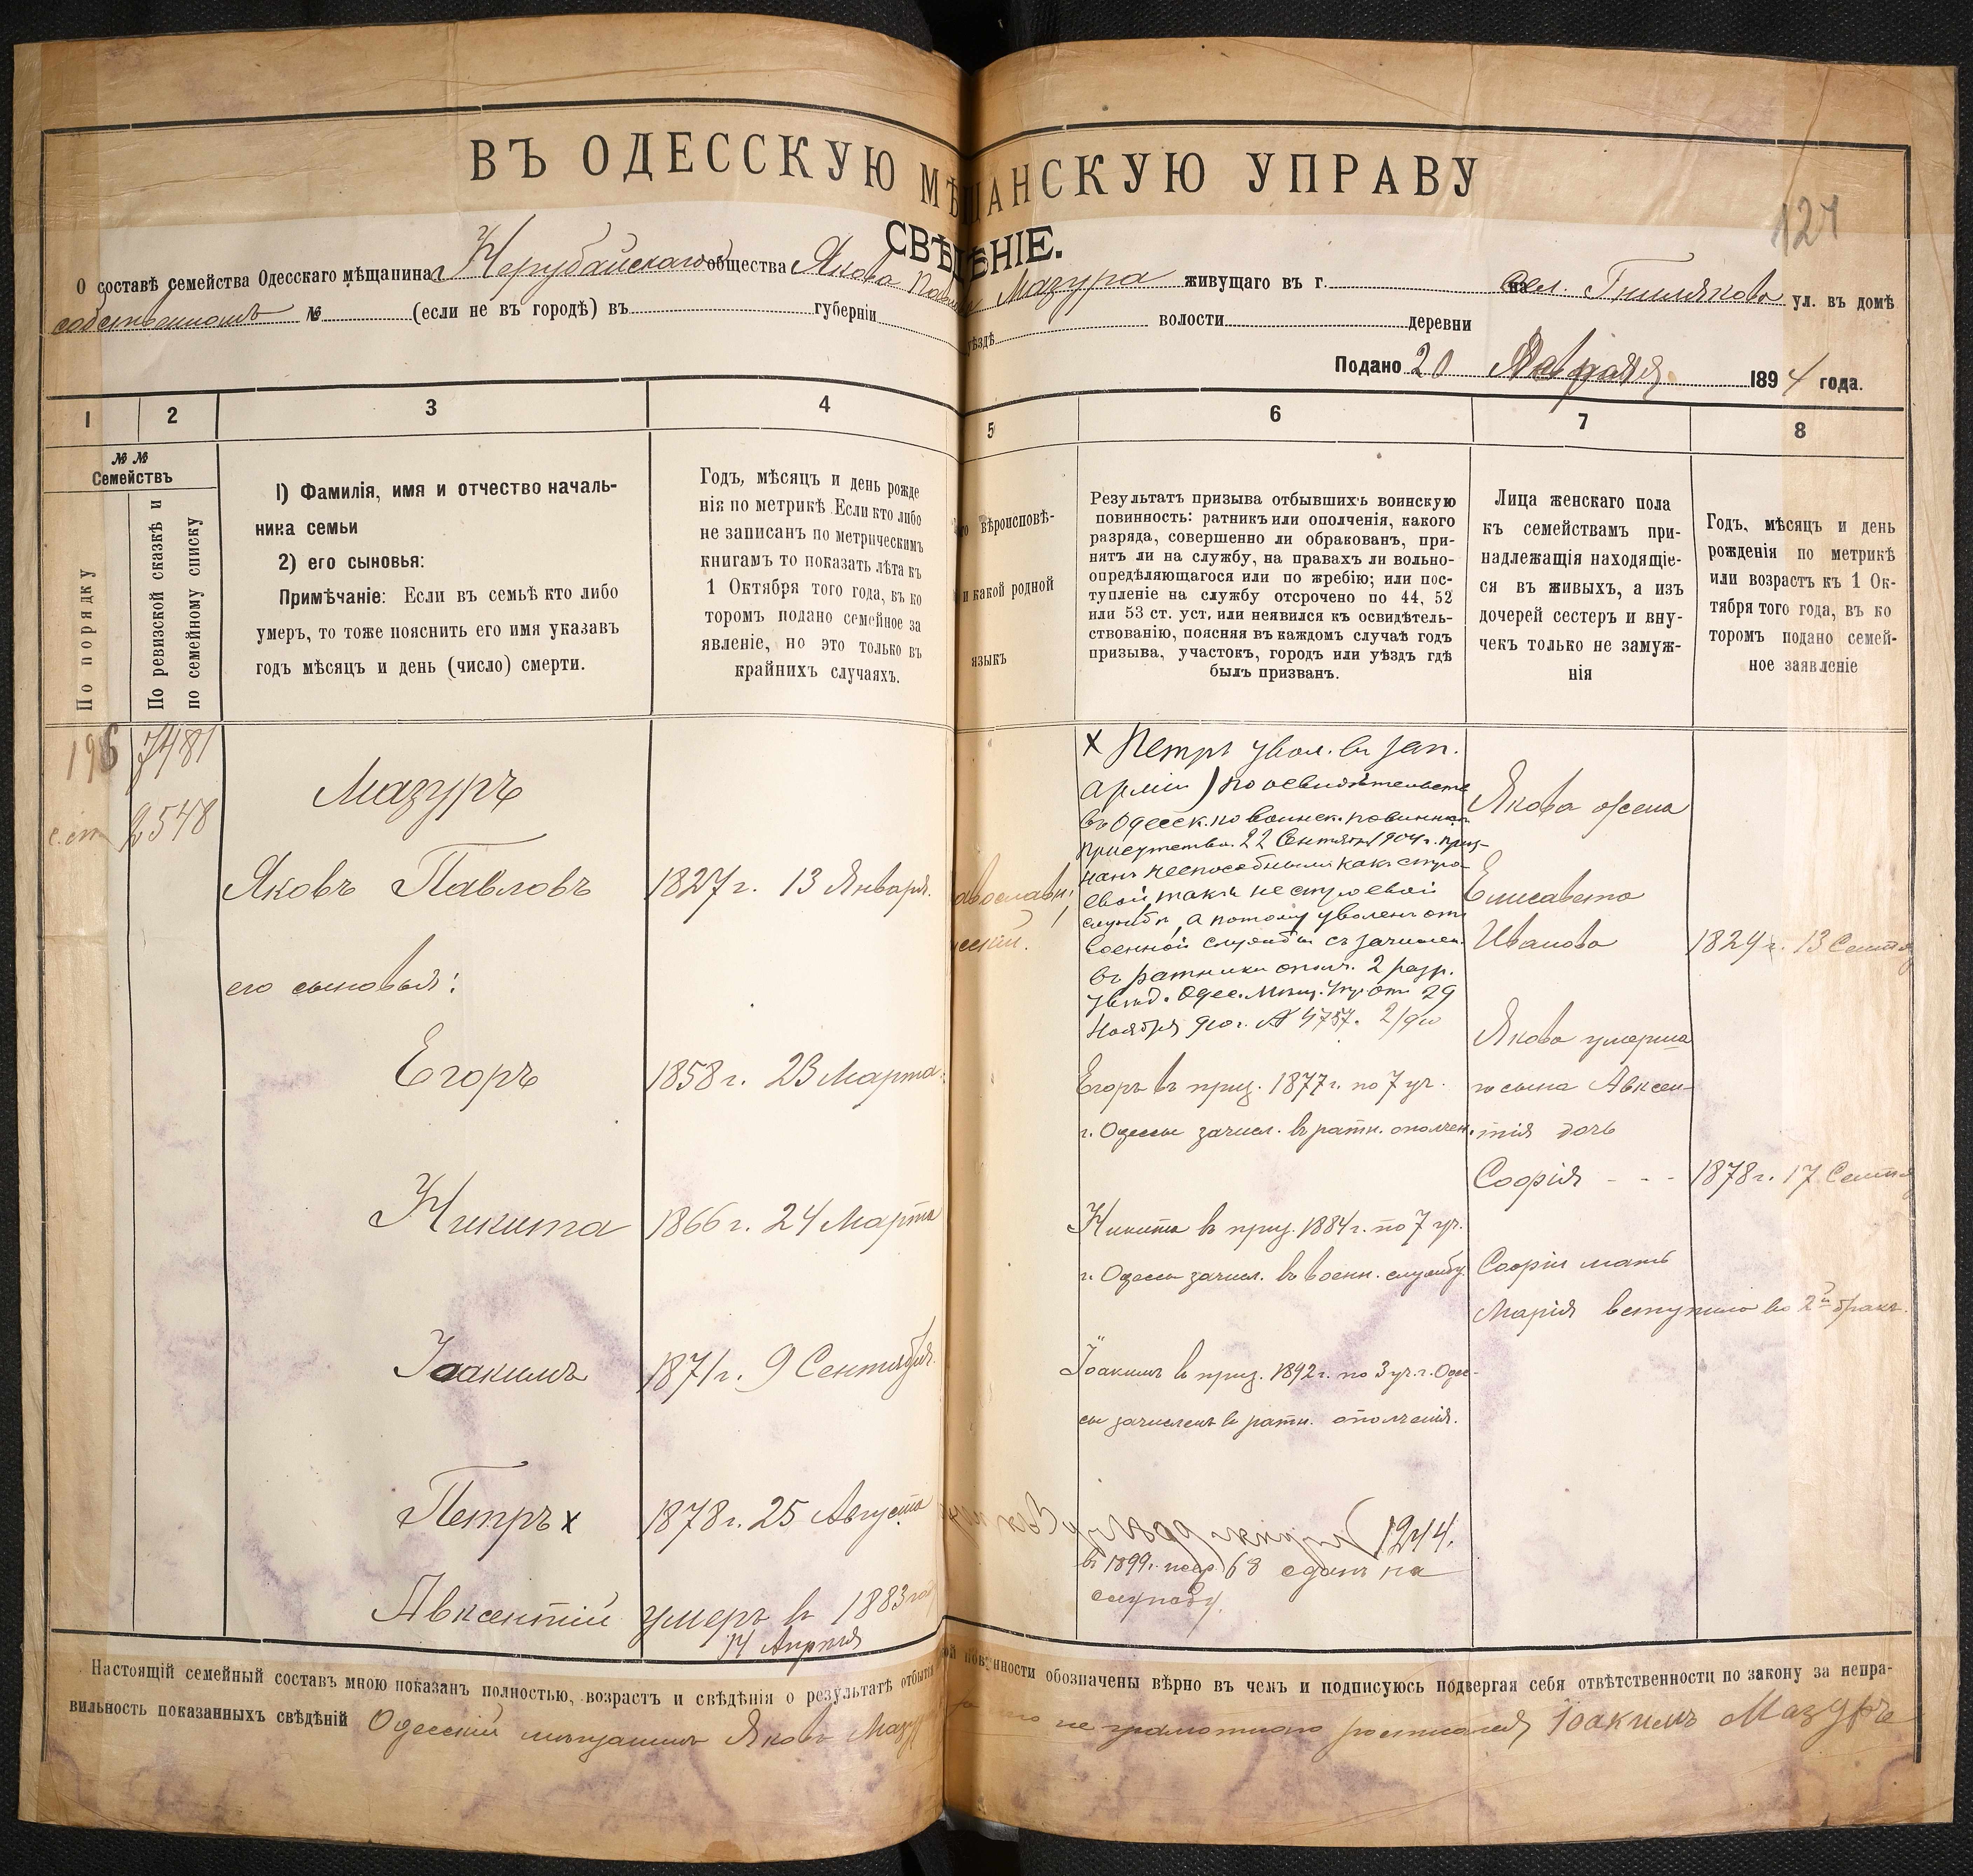 ВЪ ОДЕССКУЮ МѢЩАНСКУЮ УПРАВУ
127
СВѢДѢНІЕ.
О составѣ семейства Одесскаго мѣщанина Нерубайскаго общества Якова Мазура живущаго въ г. на сел. Гниляково ул. въ домѣ
собственномъ № (если не въ городѣ) въ губерніи уѣздѣ волости деревни
Подано 20 1894 года.
1 2 3 4 5 6 7 8
№ №
Семействъ
По порядку
По ревизской сказкѣ и
по семейному списку
1) Фамилія, имя и отчество началь-
ника семьи
2) его сыновья:
Примѣчаніе: Если въ семьѣ кто либо
умеръ, то тоже пояснить его имя указавъ
годъ мѣсяцъ и день (число) смерти.
Годъ, мѣсяцъ и день рожде
нія по метрикѣ Если кто либо
не записанъ по метрическимъ
книгамъ то показать лѣта къ
1 Октября того года, въ ко
торомъ подано семейное за
явленіе, но это только въ
крайнихъ случаяхъ.
вѣроисповѣ-
и какой родной
языкъ
Результатъ призыва отбывшихъ воинскую
повинность: ратникъ или ополченія, какого
разряда, совершенно ли обракованъ, при-
нятъ ли на службу, на правахъ ли вольно-
опредѣляющагося или по жребію; или пос-
тупленіе на службу отсрочено по 44, 52
или 53 ст. уст. или неявился къ освидѣтель-
ствованію, поясняя въ каждомъ случаѣ годъ
призыва, участокъ, городъ или уѣздъ гдѣ
былъ призванъ.
Лица женскаго пола
къ семействамъ при-
надлежащія находящіе-
ся въ живыхъ, а изъ
дочерей сестеръ и вну-
чекъ только не замуж-
нія
Годъ, мѣсяцъ и день
рожденія по метрикѣ
или возрастъ къ 1 Ок-
тября того года, въ ко
торомъ подано семей-
ное заявленіе
196 7481
2548
Мазуръ
Яковъ Павловъ 1827 г. 13 Января.
его сыновья:
Егоръ 1858 г. 23 Марта
Никита 1866 г. 24 Марта
Іоакимъ 1871 г. 9 Сентября
Петръ х 1878 г. 25 Августа
Авксентій умеръ в 1883 год
14 Апреля
х Петръ увол. въ зап.
арміи) по освидѣтельств
въ Одесск. по воинск. повинност
присутствіи 22 Сентября 1904 г. приз-
нанъ неспособнымъ какъ строе-
вой, такъ нестроевой
службѣ, а потому уволенъ отъ
военной службы съ зачислен.
въ ратники ополч. 2 разр.
увѣд. Одес. Мѣщ. Упр. отъ 29
Ноября 910 г. № 4757. 2/910
Егоръ въ приз. 1877 г. по 7 уч.
г. Одессы зачисл. въ ратн. ополчен.
Никита в приз. 1884 г. по 7 уч.
г. Одессы зачисл. въ воен. службу
Іоакимъ в приз. 1892 г. по 3 уч. г. Одес-
сы зачисленъ в ратн. ополченія.
1244.
в 1899 г. жер. 68 сданъ на
службу.
Якова жена
Елисавета
Иванова 1829 г. 13 Сентя
Якова умерша
го сына Авксен-
тія дочь
Софія - - - 1878 г. 17 Сентя
Софіи мать
Марія вступила во 2й бракъ.
Настоящій семейный составъ мною показанъ полностью, возрастъ и свѣдѣнія о результатѣ отбытія повинности обозначены вѣрно въ чемъ и подписуюсь подвергая себя отвѣтственности по закону за непра-
вильность показанныхъ свѣдѣній Одесскій мѣщанинъ Яковъ Мазуръ не грамотнаго росписался Іоакимъ Мазуръ